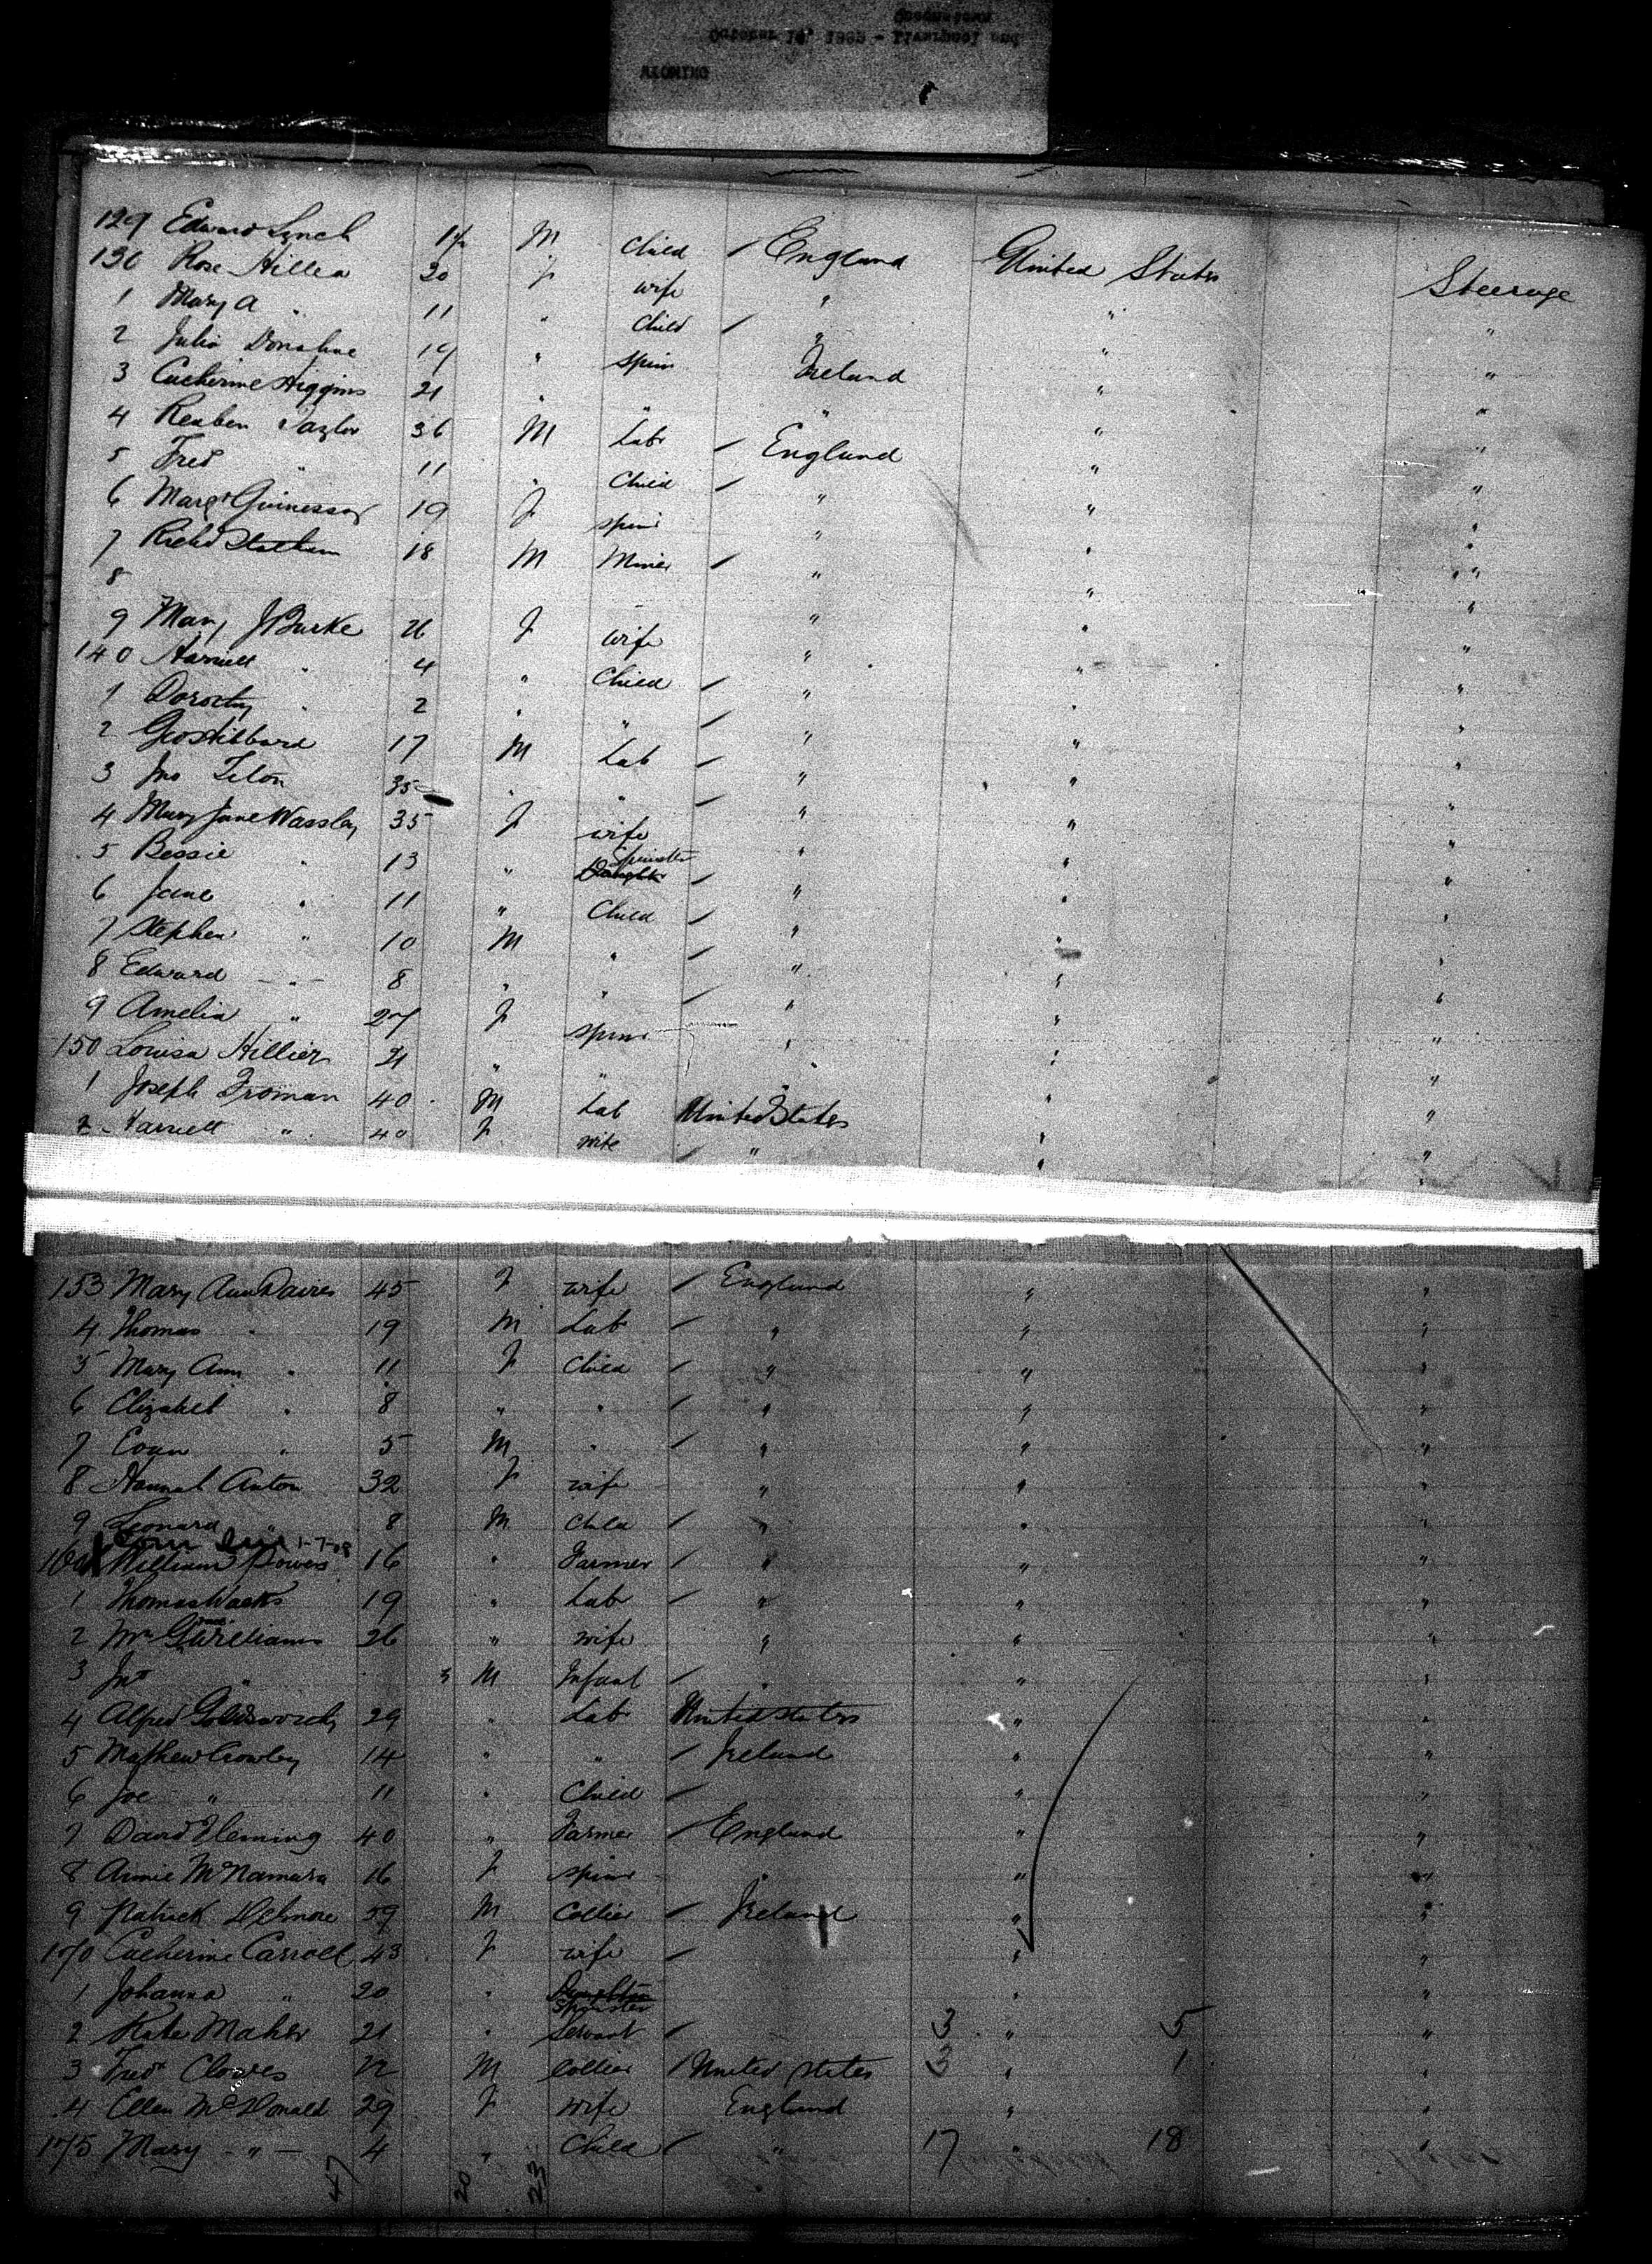 WYOMING
October 1885 - Liverpool and
Queenstown
129 Edward Lynch M Child / England United States Steerage
130 Rose Hillea 20 F wife " " "
1 Mary A " 11 " Child / " " "
2 Julia Donahue 19 " Spin Ireland " "
3 Catherine Higgins 21 " " " " "
4 Reuben Taylor 36 M Lab / England " "
5 Fred " 11 " Child / " " "
6 Margt 19 F Spin " " "
7 Richd Statham 18 M Miner / " " "
8
9 Mary J Burke 26 F wife " " "
140 Harriett " 4 " Child / " " "
1 Dorothy " 2 " " / " " "
2 Geo Hibbard 17 M Lab / " " "
3 Jno 35 " " / " " "
4 Mary Jane Wassley 35 F wife " " "
5 Bessie " 13 " Spinster / " " "
6 Jane " 11 " Child / " " "
7 Stephen " 10 M " / " " "
8 Edward - " - 8 " " / " " "
9 Amelia " 27 F Spin " " "
150 Louisa Hillier 21 " " " " "
1 Joseph Froman 40 M Lab United States " "
2 Harriett " 40 F wife / " " "
153 Mary Ann Davies 45 F wife / England " "
4 Thomas " 19 M Lab / " " "
5 Mary Ann " 11 F Child / " " "
6 Elizabet " 8 " " / " " "
7 Evan " 5 M " / " " "
8 Hannah Anton 32 F wife " " "
9 Leonard " 8 M Child / " " "
1-7-
160 William Powers 16 " Farmer / " " "
1 Thomas 19 " Lab / " " "
2 Mrs G Williams 26 " wife " " "
3 Jno " 3 M Infant / " " "
4 Alfred Goldsworthy 29 " Lab United States " "
5 Mathew Crowley 14 " " / Ireland " "
6 Joe " 11 " Child / " "
7 David Fleming 40 " Farmer / England " "
8 Annie McNamara 16 F Spin " " "
9 Patrick 59 M Collier / Ireland " "
170 Catherine Carroll 43 F wife / " "
1 Johanna " 20 " Daughter " "
Spinster
2 Kate Maher 21 " Servant / 3 " 5 "
3 Fred Clowes 22 M Collier / United States 3 " 1 "
4 Ellen McDonald 29 F wife England " "
175 Mary - " - 4 " Child / " 17 " 18 "
47 20 23